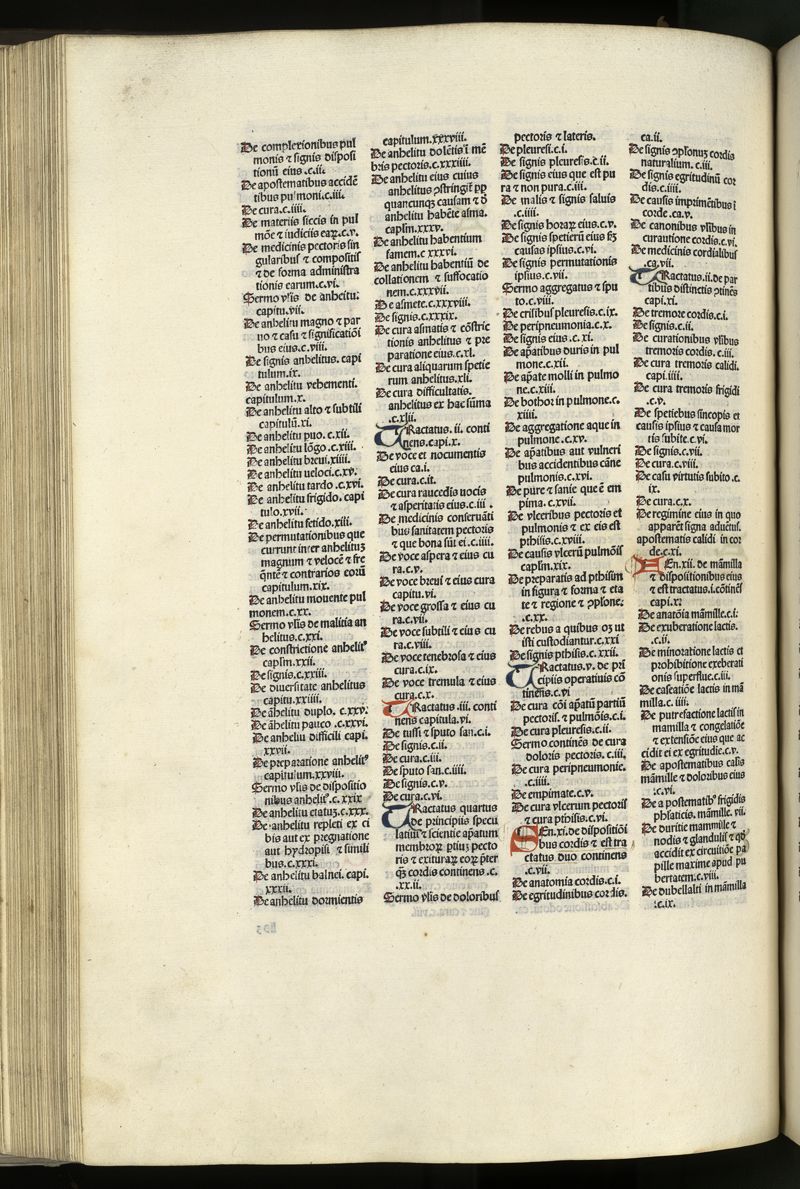 De complexionibus pul
monis ⁊ signis disposi
tionū eius .c.ii.
De apostematibus accidē
tibus pulmoni.c.iii.
De cura.c.iiii.
De materiis siccis in pul
mōe ⁊ iudiciis eaꝝ.c.v.
De medicinis pectoris sin
gularibus ⁊ compositis
⁊ de forma administra
tionis earum.c.vi.
Sermo vl̄is de anhelitu:
capitu.vii.
De anhelitu magno ⁊ par
uo ⁊ causis ⁊ significatiōi
bus eius.c.viii.
De signis anhelitus. capi
tulum.ix.
De anhelitu vehementi.
capitulum.x.
De anhelitu alto ⁊ subtili
capitulū.xi.
De anhelitu puo. c.xii.
De anhelitu lōgo .c.xiii.
De anhelitu breui.xiiii.
De anhelitu ueloci.c.xv.
De anhelitu tardo .c.xvi.
De anhelitu frigido. capi
tulo.xvii.
De anhelitu fetido.xiii.
De permutationibus que
currunt inter anhelitus
magnum ⁊ velocē ⁊ fre
q̄ntē ⁊ contrarios eorū
capitulum.xix.
De anhelitu mouente pul
monem.c.xx.
Sermo vl̄is de malitia an
helitus.c.xxi.
De constrictione anhelit⁹
capl̄m.xxii.
De signis.c.xxiii.
De diuersitate anhelitus
capitu.xxiiii.
De āhelitu duplo. c.xxv.
De āhelitu pauco .c.xxvi.
De anheliu difficili capi.
xxvii.
De preparatione anhelit⁹
capitulum.xxviii.
Sermo vl̄is de dispositio
nibus anhelit⁹. c.xxix
De anhelitu etatuz.c.xxx.
De anhelitu repleti ex ci
bis aut ex pregnatione
aut hydropisi ⁊ simili
bus.c.xxxi.
De anhelitu balnei. capi.
xxxii.
De anhelitu dormientis
capitulum.xxxviii.
De anhelitu dolētis ī mē
bris pectoris.c.xxxiiii.
De anhelitu eius cuius
anhelitus ꝯstringit̄ ꝓp̄
quancunqꝫ causam ⁊ d̄
anhelitu habēte asma.
capl̄m.xxxv.
De anhelitu habentium
famem.c xxxvi.
De anhelitu habentiū de
collationem ⁊ suffocatio
nem.c.xxxvii.
De asmete.c.xxxviii.
De signis.c.xxxix.
De cura asmatis ⁊ cōstric
tionis anhelitus ⁊ pre
paratione eius.c.xl.
De cura aliquarum spetie
rum anhelitus.xli.
De cura difficultatis.
anhelitus ex hac sūma
.c.xlii.
TRactatus. ii. conti
nens.capi.x.
De voce et nocumentis
eius ca.i.
De cura.c.ii.
De cura raucedīs uocis
⁊ asperitatis eius.c.iii .
De medicinis conseruāti
bus sanitatem pectoris
⁊ que bona sūt ei .c.iiii.
De voce aspera ⁊ eius cu
ra.c.v.
De voce breui ⁊ eius cura
capitu.vi.
De voce grossa ⁊ eius cu
ra.c.vii.
De voce subtili ⁊ eius cu
ra.c.viii.
De voce tenebrosa ⁊ eius
cura.c.ix.
De voce tremula ⁊ eius
cura.c.x.
TRactatus .iii. conti
nens capitula.vi.
De tussi ⁊ sputo san.c.i.
De signis.c.ii.
De cura.c.iii.
De sputo san.c.iiii.
De signis.c.v.
De cura.c.vi.
TRactatus quartus
de principiis specu
latiuis ⁊ scientie ap̄atum
membroꝝ ꝓtiuꝫ pecto
ris ⁊ exituraꝝ eoꝝ p̄ter
q̄ꝫ cordis continens .c.
.xx.ii.
Sermo vl̄is de doloribus
pectoris ⁊ lateris.
De pleuresi.c.i.
De signis pleuresis.c.ii.
De signis eius que est pu
ra ⁊ non pura.c.iii.
De malis ⁊ signis saluis
.c.iiii.
De signis horaꝝ eius.c.v.
De signis spetierū eius ẜꝫ
causas ipsius.c.vi.
De signis permutationis
ipsius.c.vii.
Sermo aggregatus ⁊ spu
to.c.viii.
De crisibus pleuresis.c.ix.
De peripneumonia.c.x.
De signis eius .c. xi.
De ap̄atibus duris in pul
mone.c.xii.
De ap̄ate molli in pulmo
ne.c.xiii.
De bothor in pulmone.c.
xiiii.
De aggregatione aque in
pulmone .c.xv.
De ap̄atibus aut vulneri
bus accidentibus cāne
pulmonis.c.xvi.
De pure ⁊ sanie que ē em
pima. c.xvii.
De vlceribus pectoris et
pulmonis ⁊ ex eis est
pthisis.c.xviii.
De causis vlcerū pulmōis
capl̄m.xix.
De preparatis ad pthisim
in figura ⁊ forma ⁊ eta
te ⁊ regione ⁊ ꝯplōne.
.c.xx.
De rebus a quibus oꝫ ut
isti custodiantur.c.xxi
De signis pthisis.c. xxii.
TRactatus.v. de pri
cipiis operatiuis cō
tinens.c.vi
De cura cōi ap̄atū partiū
pectoris. ⁊ pulmōis.c.i.
De cura pleuresis.c.ii.
Sermo continēs de cura
doloris pectoris. c.iii.
De cura peripneumonie.
.c.iiii.
De empimate.c.v.
De cura vlcerum pectoris
⁊ cura pthisis.c.vi.
FEn.xi.de dispositiōi
bus cordis ⁊ est tra
ctatus duo continens
.c.vii.
De anatomia cordis.c.i.
De egritudinibus cordis.
ca.ii.
De signis ꝯplonuꝫ cordis
naturalium. c.iii.
De signis egritudinū cor
dis.c.iiii.
De causis imprimētibus ī
corde .ca.v.
De canonibus vl̄ibus in
curatione cordis.c.vi.
De medicinis cordialibus
.ca.vii.
TRactatus.ii.de par
tibus distinctis ꝯtinēs
capi.xi.
De tremore cordis.c.i.
De signis.c.ii.
De curationibus vl̄ibus
tremoris cordis. c.iii.
De cura tremoris calidi.
capi.iiii.
De cura tremoris frigidi
.c.v.
De spetiebus sincopis et
causis ipsius ⁊ causa mor
tis subite.c.vi.
De signis.c.vii.
De cura.c.viii.
De casu virtutis subito.c.
ix.
De cura.c.x.
De regimine eius in quo
apparēt signa aduētus.
apostematis calidi in cor
de.c.xi.
FEn.xii. de māmilla
⁊ dispositionibus eius
⁊ est tractatus.i.cōtinēs
capi.x.
De anatōia māmille.c.i.
De exuberatione lactis.
.c.ii.
De minoratione lactis et
prohibitione exeberati
onis superflue.c.iii.
De caseatiōe lactis in mā
milla.c.iiii.
De putrefactione lactis in
mamilla ⁊ congelatiōe
⁊ extensiōe eius que ac
cidit ei ex egritudīe.c.v.
De apostematibus calis
māmille ⁊ doloribus eius
.c.vi.
De a postematib⁹ frigidis
phl̄aticis. māmille. vii.
De duritie mammille ⁊
nodis ⁊ glandulis ⁊ qp̄
accidit ex circuitiōe pa
pille maxime apud pu
bertatem.c.viii.
De dubellatti in māmilla
.c.ix.